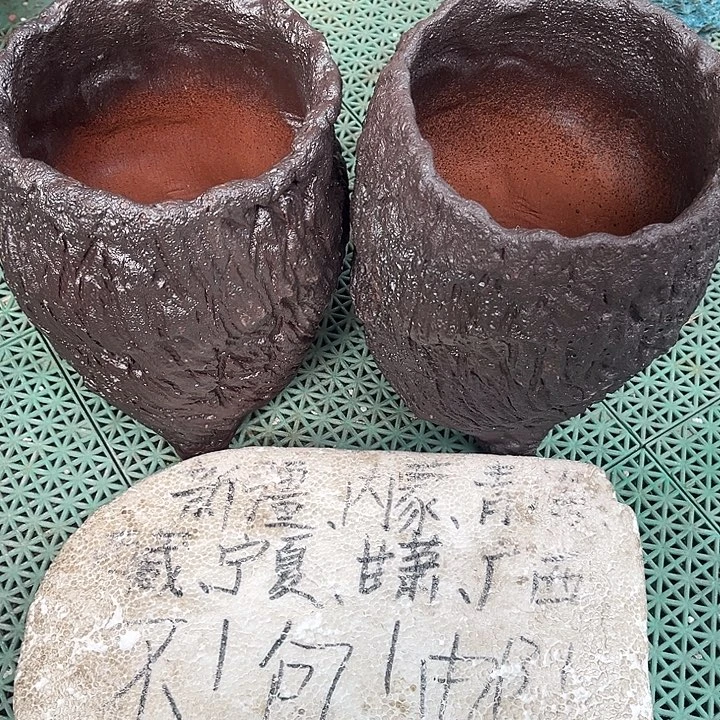 新疆、内蒙、青海
藏、宁夏、甘肃、广西
不包邮